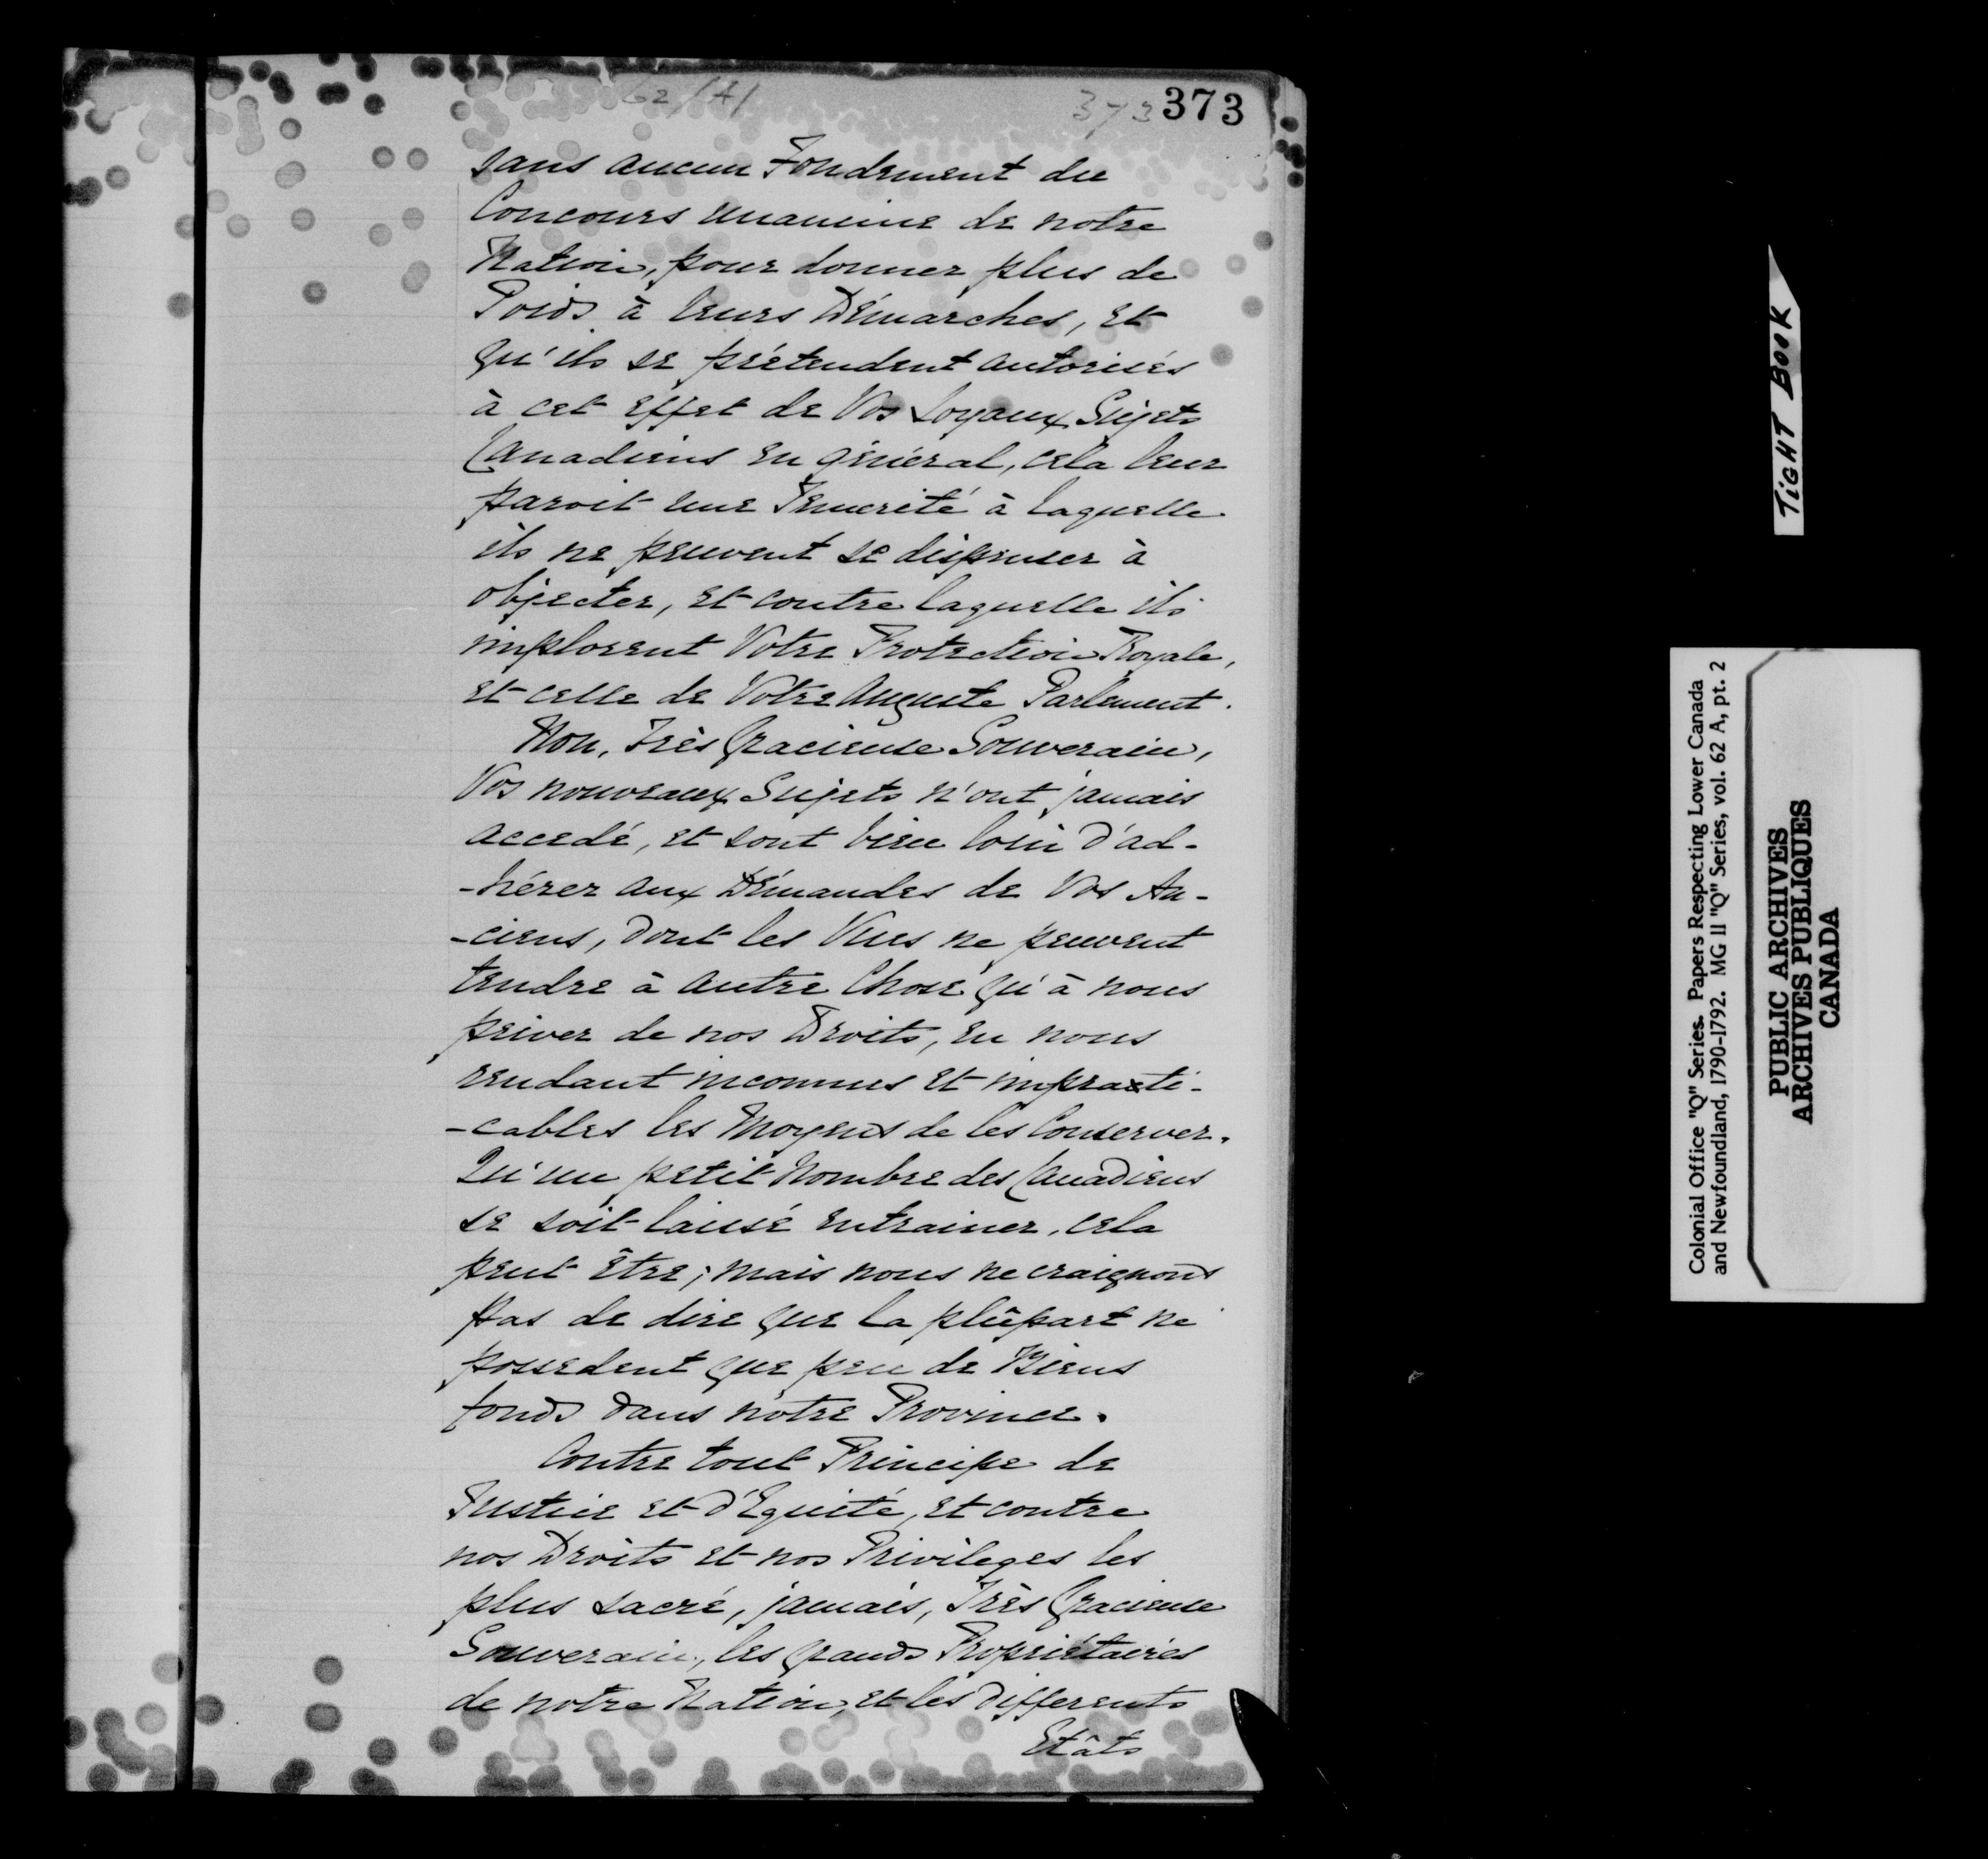 62/A/
373 373
sans aucun Fondement du
Concours unanime de notre
Nation, pour donner plus de
Poids à leurs Démarches, et
qu'ils se prétendent autorisés
à cet effet de Vos Loyaux Sujets
Canadiens en général, cela leur
paroit une Temerité à laquelle
ils ne peuvent se dispenser à
objecter, et contre laquelle ils
implorent Votre Protection Royale,
et celle de Votre Auguste Parlement.
Non, Très Gracieuse Souverain,
Vos nouveaux Sujets n'ont jamais
accedé, et sont bien loin d'ad-
-hérer aux Démandes de Vos An-
-ciens, dont les Vues ne peuvent
tendre à autre Chose qu'à nous
priver de nos Droits, en nous
rendant inconnus et impracti-
-cables les Moyens de les Conserver.
Qu'un petit Nombre des Canadiens
se soit laissé entrainer, cela
peut être; mais nous ne craignons
pas de dire que la plûpart ne
possedent que peu de Biens
fonds dans notre Province.
Contre tout Principe de
Justice et d'Equité, et contre
nos Droits et nos Privileges les
plus sacré, jamais, Très Gracieuse
Souverain, les grands Propriétaires
de notre Nation, et les differents
Etâts
TIGHT BOOK
Colonial Office "Q" Series. Papers Respecting Lower Canada
and Newfoundland, 1790-1792. MG 11 "Q" Series, vol. 62 A, pt. 2
PUBLIC ARCHIVES
ARCHIVES PUBLIQUES
CANADA